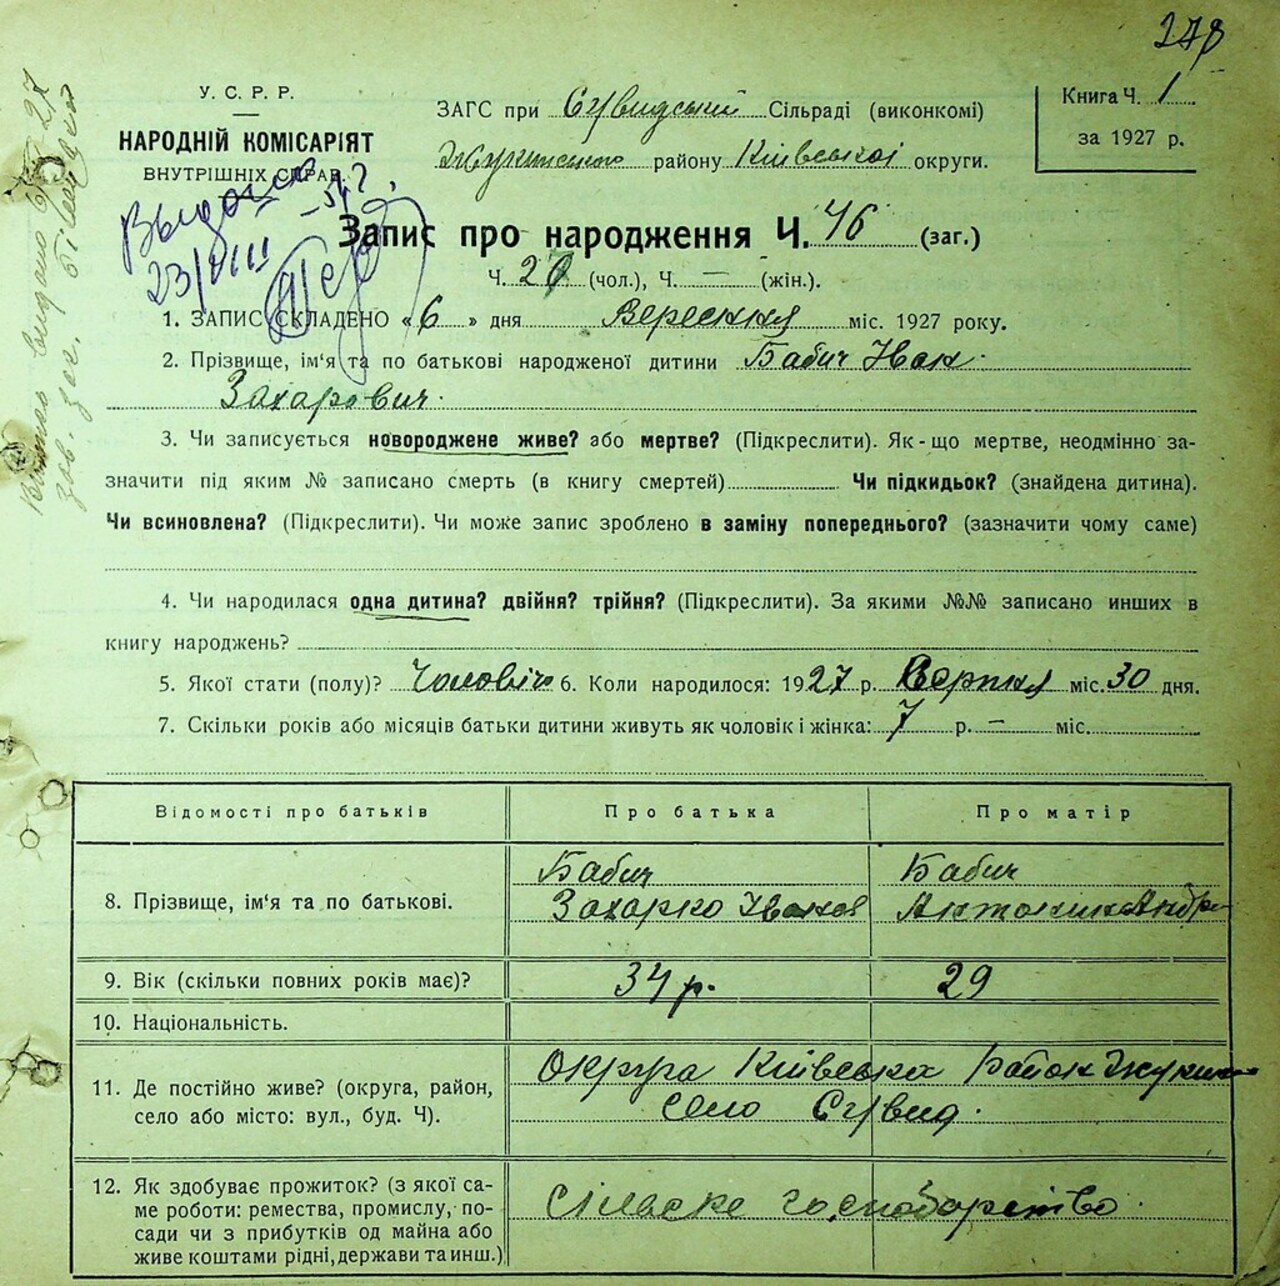 278
У. С. Р. Р.
НАРОДНІЙ КОМІСАРІЯТ
ВНУТРІШНІХ СПРАВ.
ЗАГС при Сувидський Сільраді (виконкомі)
Жукинського району Київської округи.
Книга Ч. 1
за 1927 р.
23/VIII
Запис про народження Ч. 46 (заг.)
Ч. 20 (чол.), Ч. — (жін.).
1. ЗАПИС СКЛАДЕНО «6» дня Вересння міс. 1927 року.
2. Прізвище, ім'я та по батькові народженої дитини Бабич Иван
Захарович.
3. Чи записується новороджене живе? або мертве? (Підкреслити). Як-що мертве, неодмінно за-
значити під яким № записано смерть (в книгу смертей) Чи підкидьок? (знайдена дитина).
Чи всиновлена? (Підкреслити). Чи може запис зроблено в заміну попереднього? (зазначити чому саме)
4. Чи народилася одна дитина? двійня? трійня? (Підкреслити). За якими №№ записано инших в
книгу народжень?
5. Якої стати (полу)? Чоловічо 6. Коли народилося: 1927 р. міс. 30 дня.
7. Скільки років або місяців батьки дитини живуть як чоловік і жінка: 7 р. — міс.
Відомості про батьків Про батька Про матір
8. Прізвище, ім'я та по батькові.
Бабич Бабич
Захарко
9. Вік (скільки повних років має)? 34 р. 29
10. Національність.
11. Де постійно живе? (округа, район,
село або місто: вул., буд. Ч).
Округа Київська Район
село Сувид.
12. Як здобуває прожиток? (з якої са-
ме роботи: ремества, промислу, по-
сади чи з прибутків од майна або
живе коштами рідні, держави та инш.)
Сілське господарство.